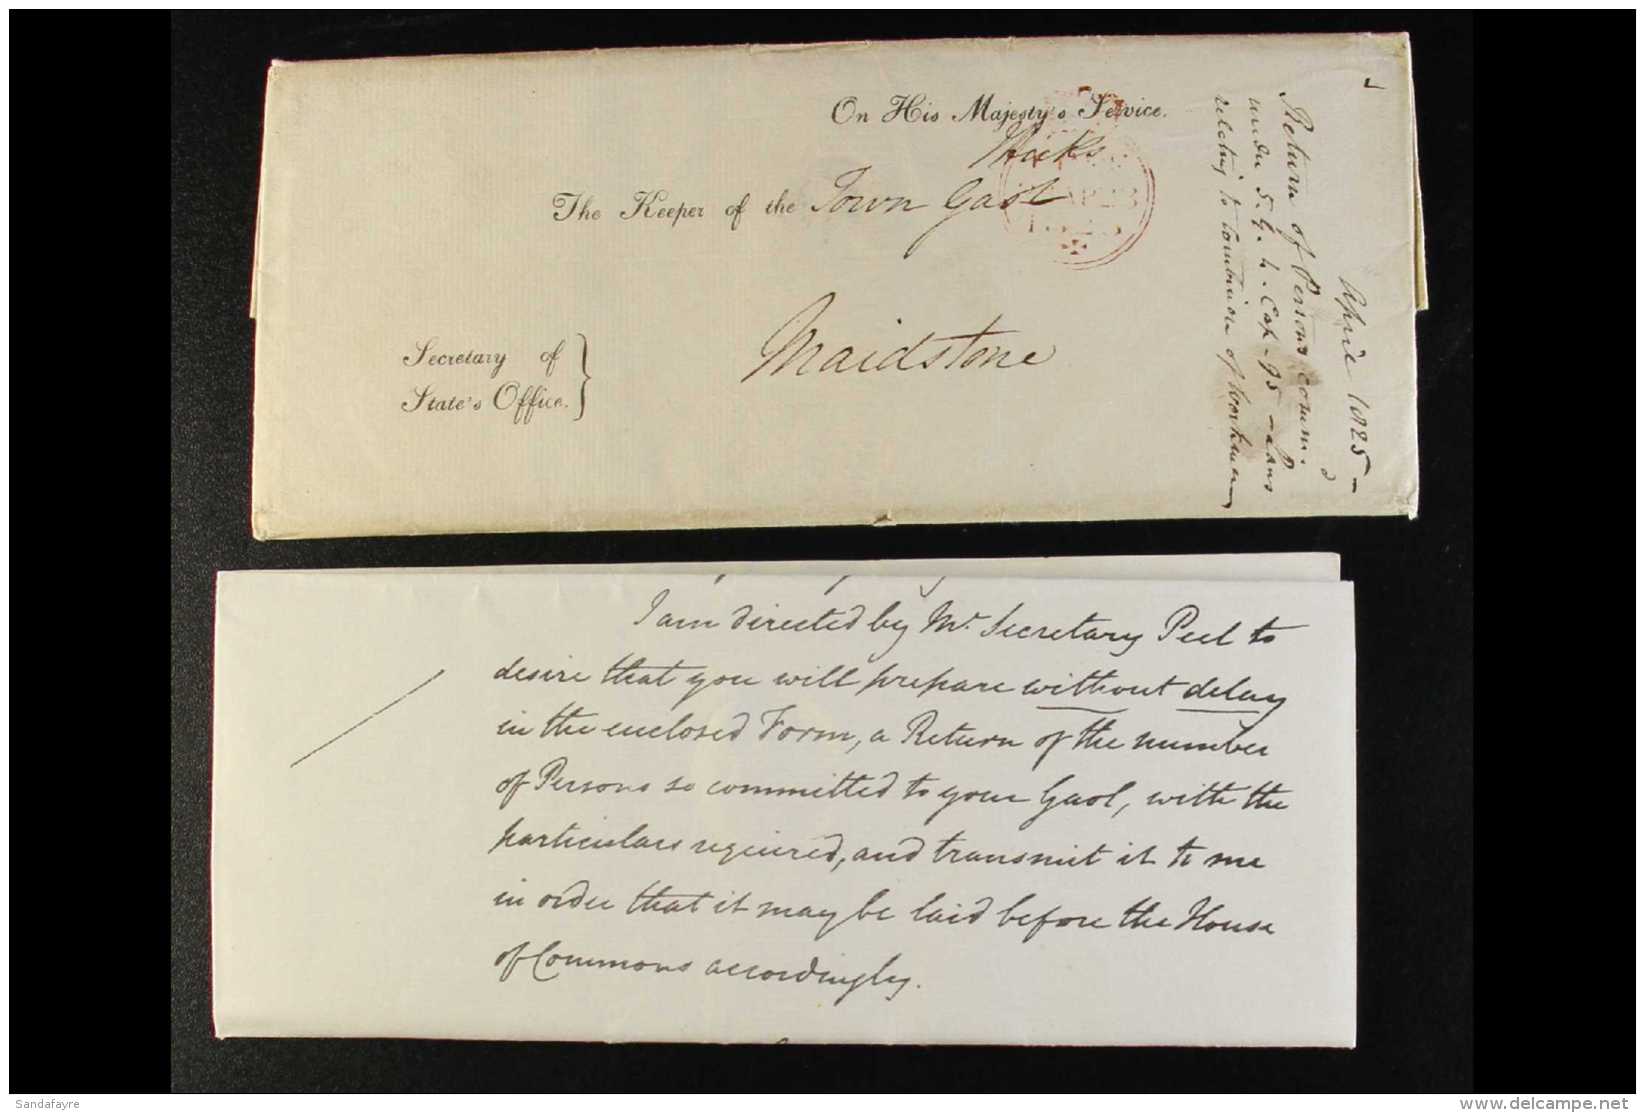 On His Majesty's Service.
The Keeper of the Town Gaol
Maidstone
Secretary of
State's Office.
April 1825 -
Return of Persons comm:d
under 5. G. 4. Cap. 95 - Laws
relating to Combination of Workmen
AP 23
I am directed by Mr. Secretary Peel to
desire that you will prepare without delay
in the enclosed Form, a Return of the number
of Persons so committed to your Gaol, with the
particulars required, and transmit it to me
in order that it may be laid before the House
of Commons accordingly.
Sandafayre
www.delcampe.net